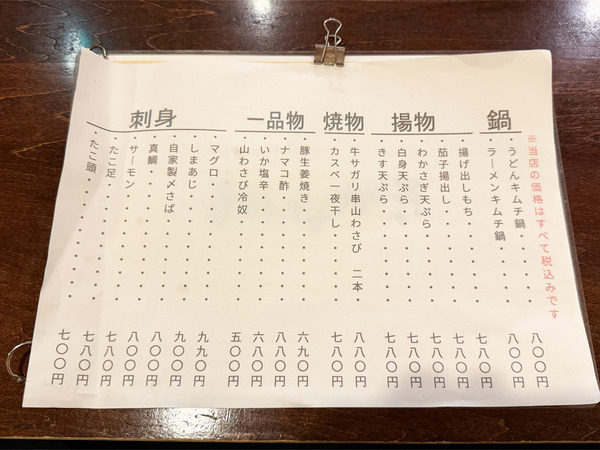 ※当店の価格はすべて税込みです
鍋
・うどんキムチ鍋・・・・八〇〇円
・ラーメンキムチ鍋・・・八〇〇円
揚物
・揚げ出しもち・・・・・七八〇円
・茄子揚出し・・・・・・七八〇円
・わかさぎ天ぷら・・・・七八〇円
・白身天ぷら・・・・・・七八〇円
・きす天ぷら・・・・・・七八〇円
焼物
・牛サガリ串山わさび 二本・八八〇円
・カスベ一夜干し・・・・七八〇円
一品物
・豚生姜焼き・・・・・・六九〇円
・ナマコ酢・・・・・・・八八〇円
・いか塩辛・・・・・・・六八〇円
・山わさび冷奴・・・・・五〇〇円
刺身
・マグロ・・・・・・・・九九〇円
・しまあじ・・・・・・・九〇〇円
・自家製〆さば・・・・・八〇〇円
・真鯛・・・・・・・・・八〇〇円
・サーモン・・・・・・・七八〇円
・たこ足・・・・・・・・七八〇円
・たこ頭・・・・・・・・七〇〇円